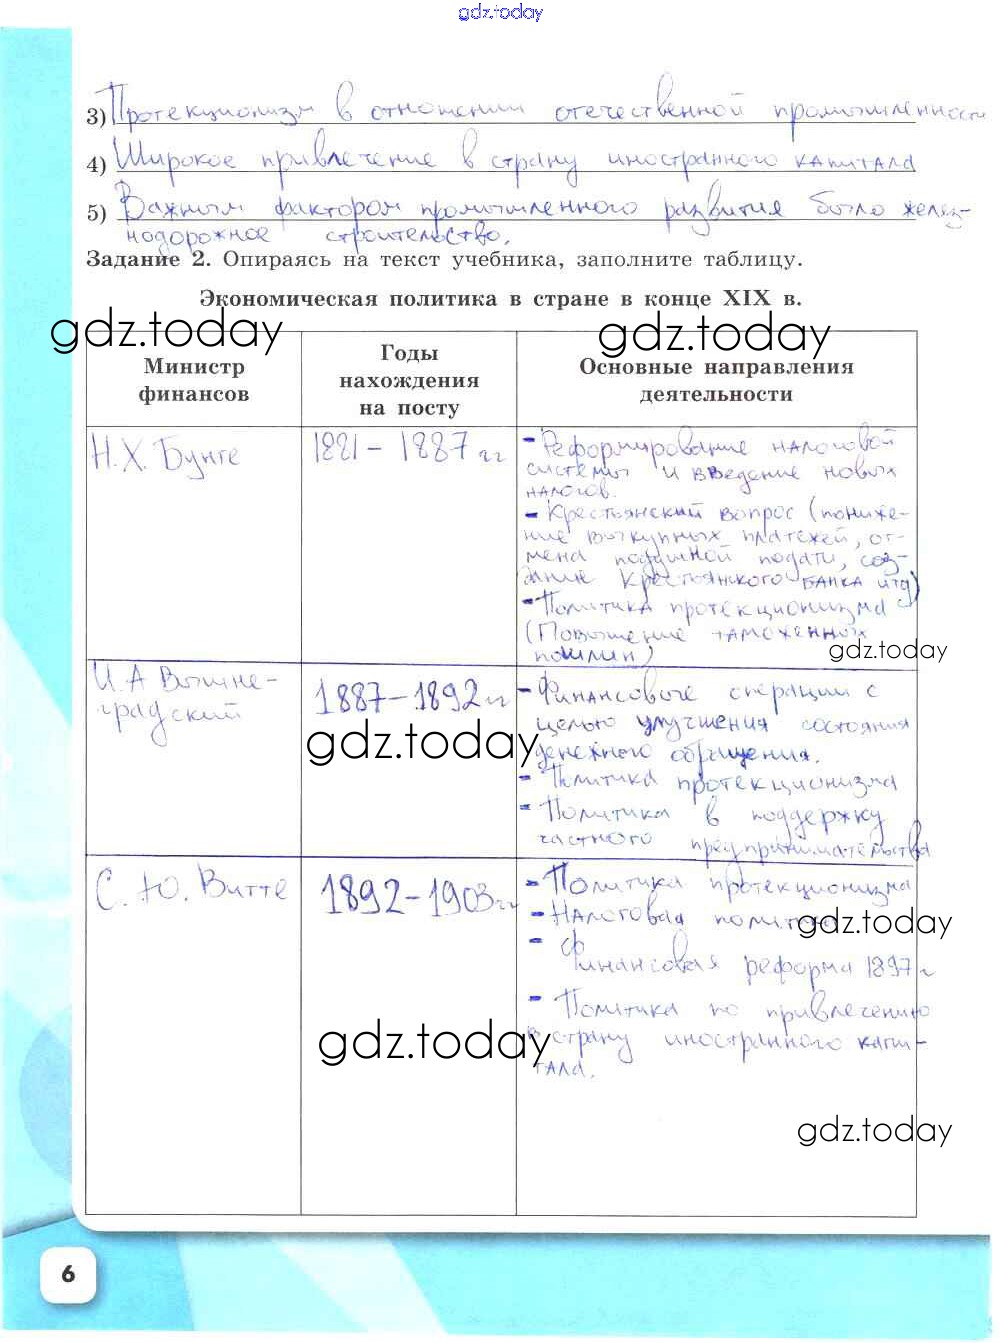 gdz.today
3) Протекционизм в отношении отечественной промышленности
4) Широкое привлечение в страну иностранного капитала
5) Важным фактором промышленного развития было желез-
нодорожное строительство.
Задание 2. Опираясь на текст учебника, заполните таблицу.
Экономическая политика в стране в конце XIX в.
gdz.today gdz.today
Министр
финансов
Годы
нахождения
на посту
Основные направления
деятельности
Н.Х. Бунге
1881 – 1887 гг
- Реформирование налоговой
системы и введение новых
налогов.
- Крестьянский вопрос (пониже-
ние выкупных платежей, от-
мена подушной подати, соз-
дание Крестьянского банка итд)
- Политика протекционизма
(Повышение таможенных
пошлин)
gdz.today
И.А Вышне-
градский
1887 – 1892 гг
gdz.today
- Финансовые операции с
целью улучшения состояния
денежного обращения.
- Политика протекционизма
- Политика в поддержку
частного предпринимательства
С. Ю. Витте
1892 – 1903 гг
- Политика протекционизма
- Налоговая политика
gdz.today
- Финансовая реформа 1897 г
- Политика по привлечению
в страну иностранного капи-
тала.
gdz.today
gdz.today
6